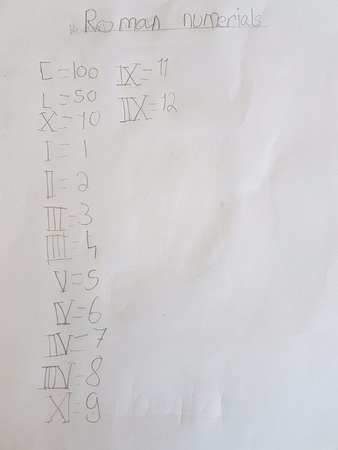 Roman numerials
C=100
L=50
X=10
I=1
II=2
III=3
IIII=4
V=5
IV=6
IIV=7
IIIV=8
XI=9
IX=11
IIX=12